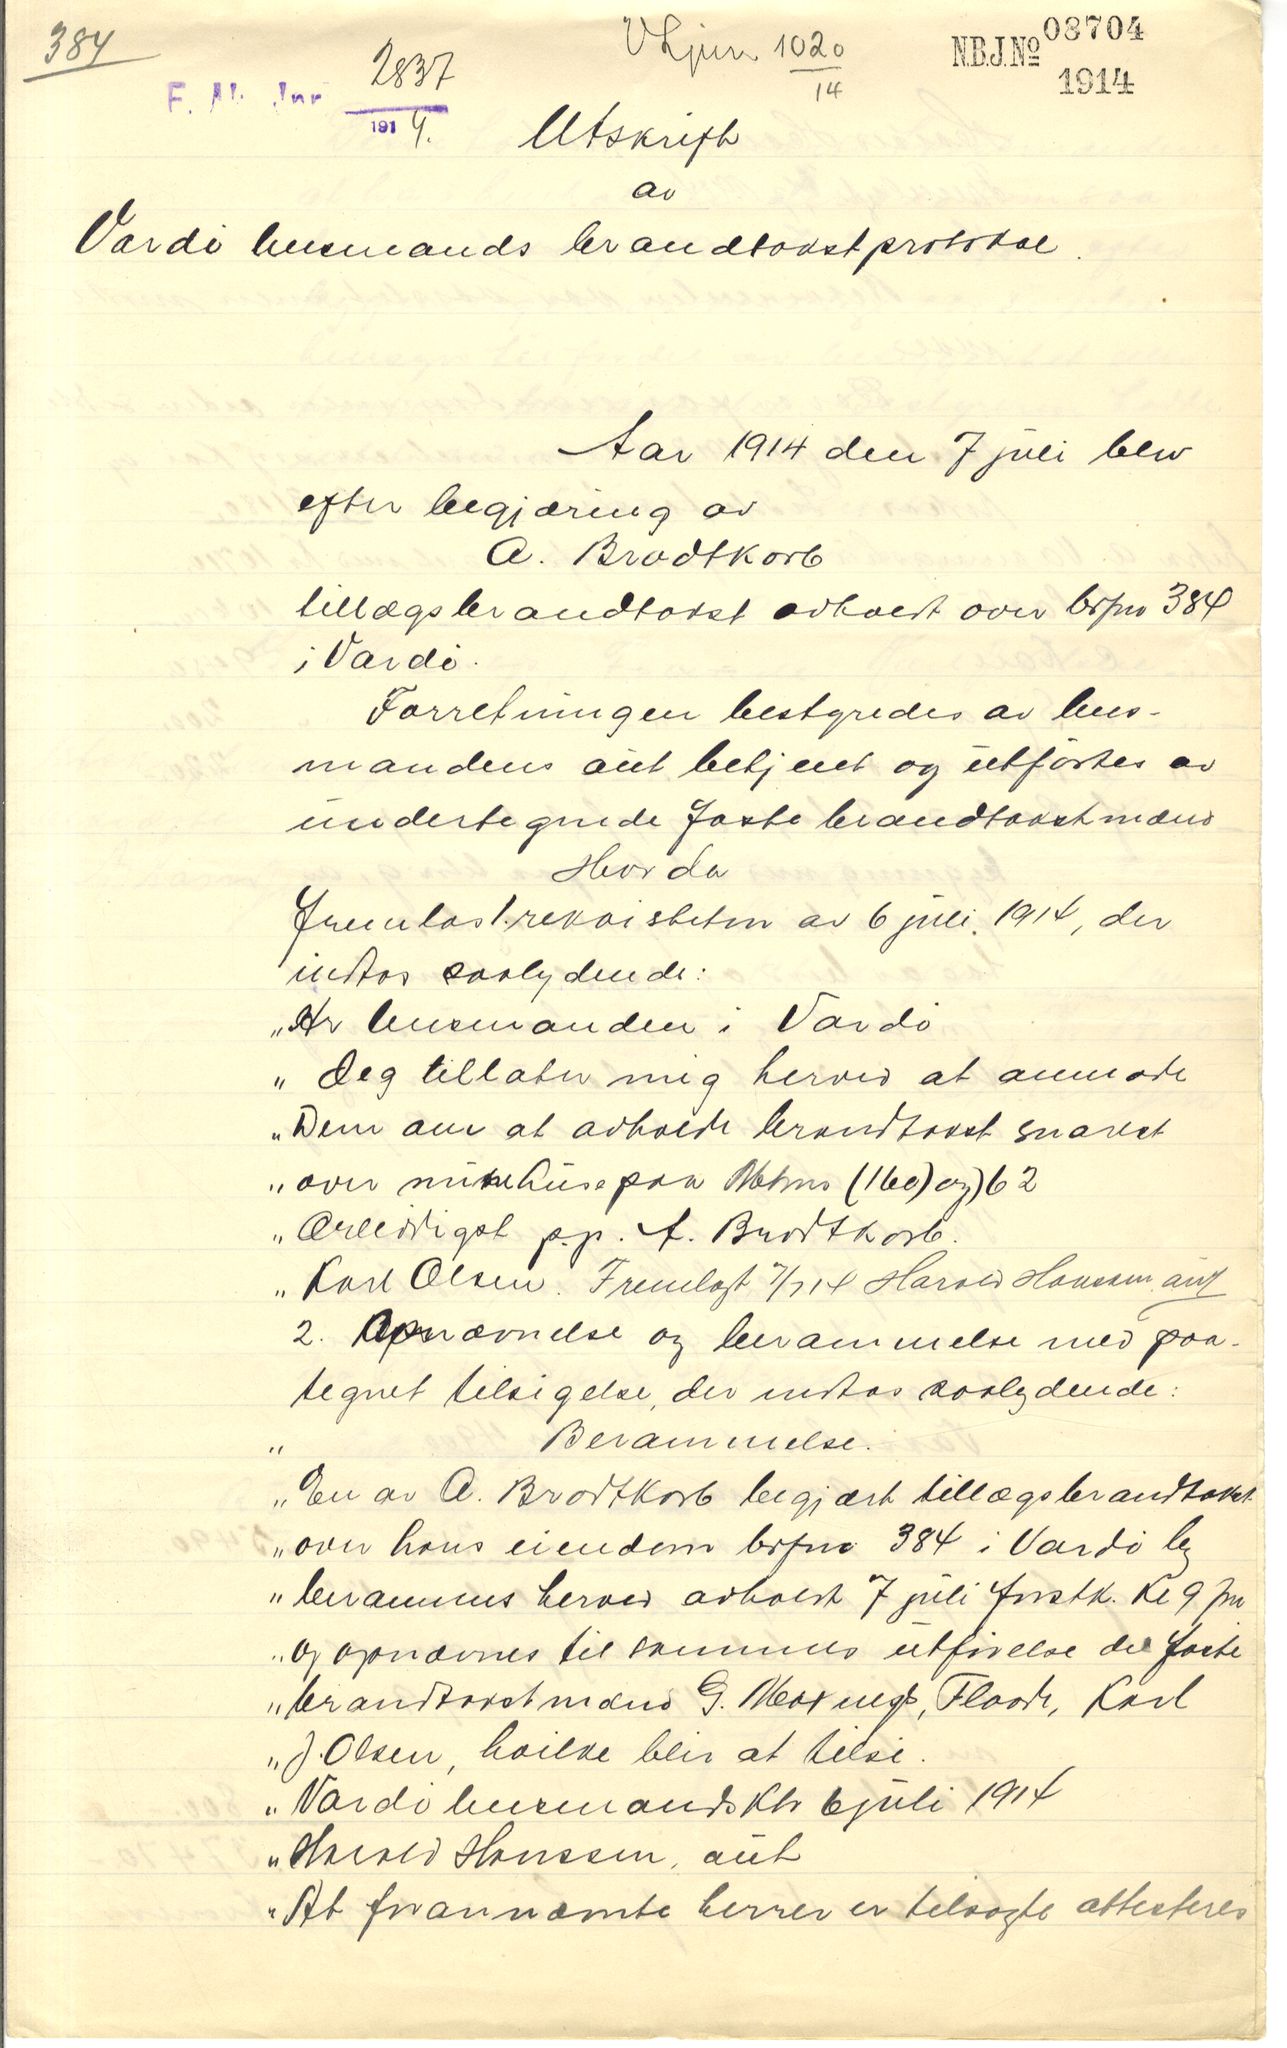 384
V hjnr 1020
14
N.B.J.No 08704
1914
F. Ak. Jnr 2837
1914.
Utskrift
av
Vardö lensmands brandtakstprotokol.
Aar 1914 den 7 juli blev
efter begjæring av
A. Brodtkorb
tillægsbrandtakst avholdt over brfnr 384
i Vardö.
Forretningen bestyredes av lens-
mandens aut betjent og utförtes av
undertegnede faste brandtakstmænd
Hvorda
fremlas 1. rekvisition av 6 juli 1914, der
indtas saalydende:
"Hr lensmanden i Vardö
"Jeg tillater mig herved at anmode
"Dem om at avholde brandtakst snarest
"over mine huse paa Mtrno (160) og) 62
"Ærbödigst p.p. A. Brodtkorb.
"Karl Olsen. Fremlagt 7/7 14 Harald Hanssen, aut
2. Opnævnelse og berammelse med paa-
tegnet tilsigelse, der indtas saalydende:
" Berammelse.
"En av A. Brodtkorb begjært tillægsbrandtakst
"over hans eiendom brfnr 384 i Vardö by
"berammes herved avholdt 7 juli førstk. kl 9 fm
"og opnævnes til sammes utförelse de faste
"brandtakstmænd G. Flood, Karl
"J. Olsen, hvilke blir at tilsi.
"Vardö lensmandsktr 6 juli 1914
"Harald Hanssen, aut
"At forannævnte herrer er tilsagte attesteres